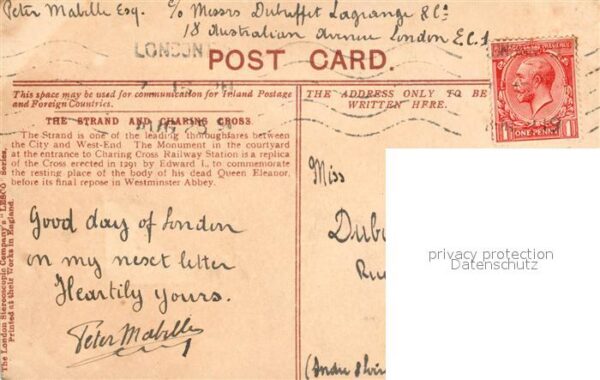 Peter Mabille Esq. c/o Messrs Dubuffet Lagrange & Co
18 Australian Avenue London E.C.1
LONDON
POST CARD.
This space may be used for communication for Inland Postage
and Foreign Countries.
THE ADDRESS ONLY TO BE
WRITTEN HERE.
POSTAGE REVENUE
ONE PENNY
THE STRAND AND CHARING CROSS.
The Strand is one of the leading thoroughfares between
the City and West-End. The Monument in the courtyard
at the entrance to Charing Cross Railway Station is a replica
of the Cross erected in 1291 by Edward I., to commemorate
the resting place of the body of his dead Queen Eleanor,
before its final repose in Westminster Abbey.
The London Stereoscopic Company's "LESCO" Series.
Printed at their Works in England.
Good day of London
on my next letter
Heartily yours.
Peter Mabille
Miss
Dubu
Ru
privacy protection
Datenschutz